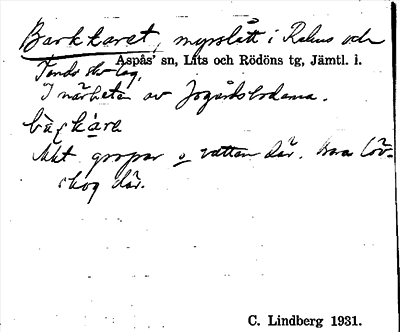 Barkkaret, myrslått i Rahus och
Tands skog,
Aspås' sn, Lits och Rödöns tg, Jämtl. i.
I närheten av Jogårdsbodarna.
Mkt gropar o vatten där. Bara löv-
skog där.
C. Lindberg 1931.